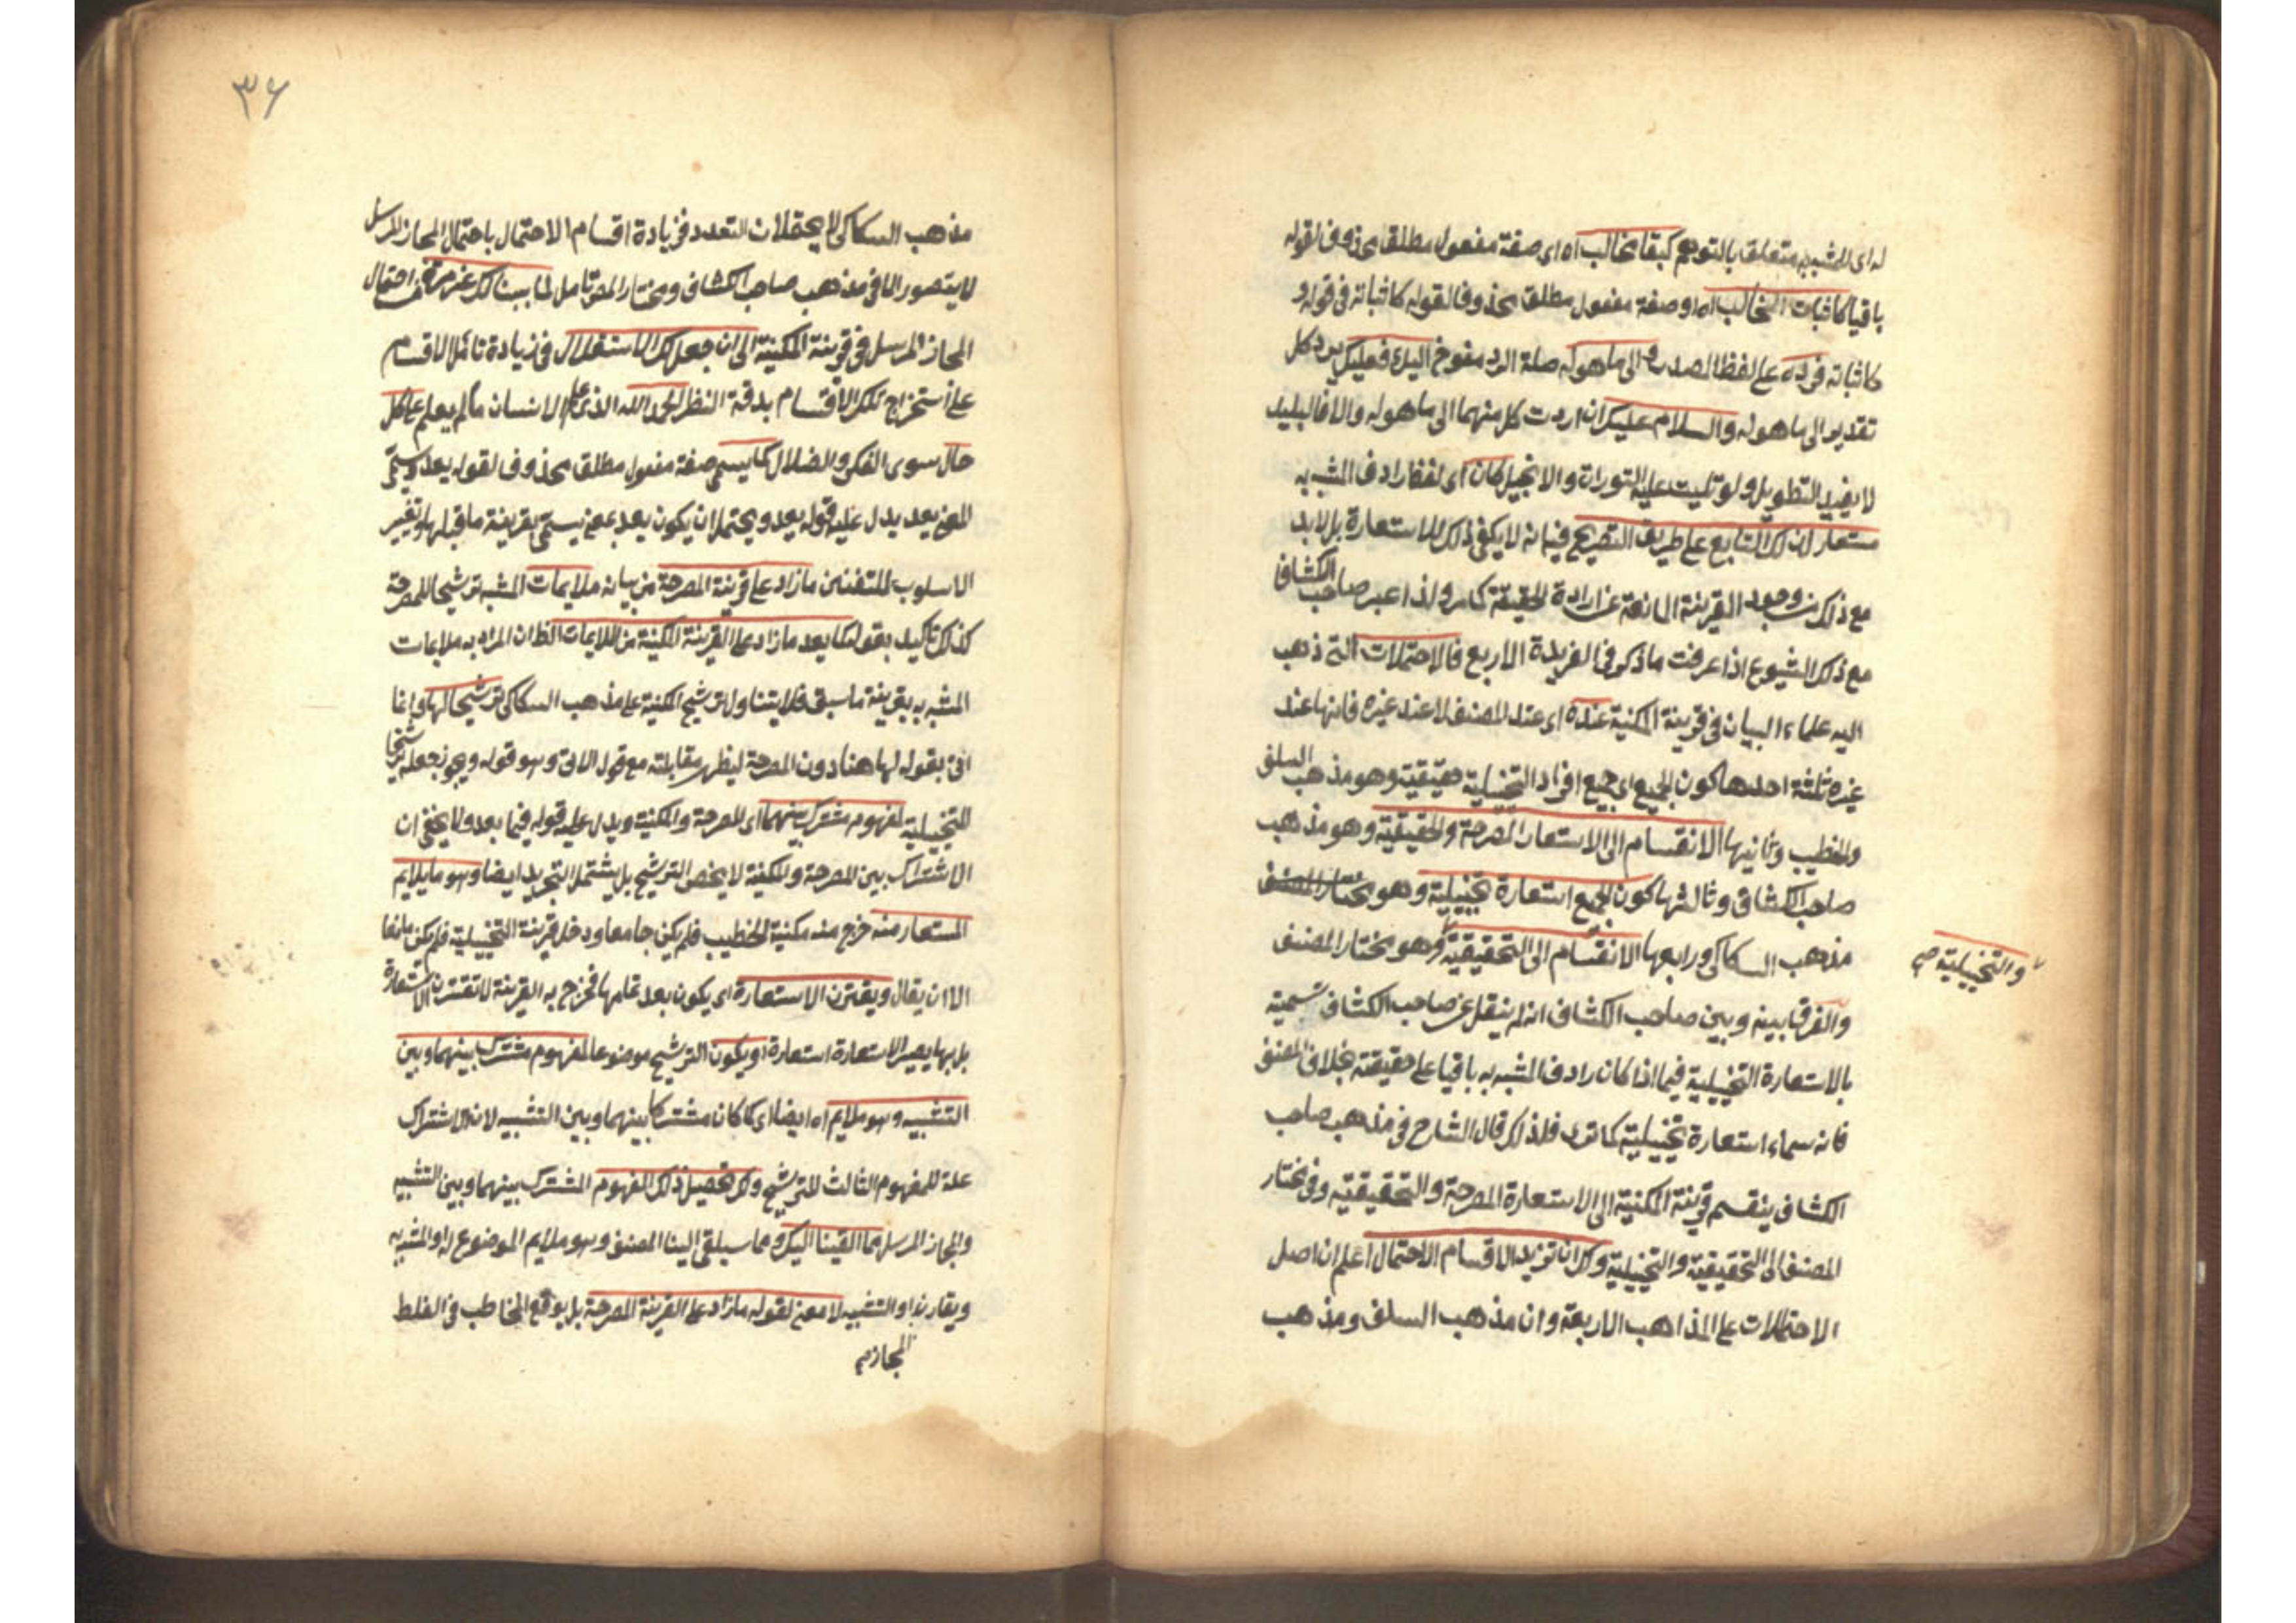 له اى للمشبه به متعلق بالتوهم كبقاء مخالب اه اى صفة مفعول مطلق محذوف لقوله
باقيا كاثبات المخالب اه او صفة مفعول مطلق محذوف لقوله كاثباته فى قوله و
كاثباته فرده على لفظ المصدر الى ما هو له صلة الرد مفوض اليك فعليك برد كل
تقدير الى ما هو له والسلام عليك ان اردت كل منهما الى ما هو له والا فالبليد
لا يفيد التطويل ولو تليت عليه التوراة والانجيل كان اى لفظ رادف المشبه به
مستعارا لذلك التابع على طريق التصريح فيه انه لا يكفى ذلك للاستعارة بل لا بد
مع ذلك من وجود القرينة المانعة عن ارادة الحقيقة كما مر ولذا عبر صاحب الكشاف
مع ذلك الشيوع اذا عرفت ما ذكر فى الفريدة الاربع فالاحتملات التى ذهب
اليه علماء البيان فى قرينة المكنية عنده اى عند المصنف لا عند غيره فانها عند
غيره ثلثة احدها كون الجميع اى جميع افراد التخييلية حقيقية وهو مذهب السلف
والخطيب وثانيها الانقسام الى الاستعارة المصرحة والحقيقية وهو مذهب
صاحب الكشاف وثالثها كون الجميع استعارة تخييلية وهو مختار المصنف
مذهب السكاكى ورابعها الانقسام الى التحقيقية وهو مختار المصنف
والتخييلية صح
والفرق بينه وبين صاحب الكشاف انه لم ينقل عن صاحب الكشاف تسمية
بالاستعارة التخييلية فيما اذا كان رادف المشبه به باقيا على حقيقته بخلاف المصنف
فانه سماه استعارة تخييلية كما ترى فلذلك قال الشارح فى مذهب صاحب
الكشاف ينقسم قرينة المكنية الى الاستعارة المصرحة والتحقيقية وفى مختار
المصنف الى التحقيقية والتخييلية ولك ان تزيد الاقسام الاحتمال اعلم ان اصل
الاحتملات على المذاهب الاربعة وان مذهب السلف ومذهب
٣٦
مذهب السكاكى لا يحتملان التعدد فزيادة اقسام الاحتمال باحتمال المجاز المرسل
لا يتصور الا فى مذهب صاحب الكشاف ومختار المص تأمل لما بينا لك غير مرة من احتمال
المجاز المرسل فى قرينة المكنية الى ان جعل لك الاستقلال فى زيادة تلك الاقسام
على استخراج تلك الاقسام بدقة النظر الحمد لله الذى علم الانسان ما لم يعلم على كل
حال سوى الفكر والضلال كما يسمى صفة مفعول مطلق محذوف لقوله يعد ويسمى
المعنى يعد يدل عليه قوله يعد ويحتمل ان يكون يعد بمعنى يسمى بقرينة ما قبلها وتغيير
الاسلوب للتفنن ما زاد على قرينة المصرحة من بيانه ملايمات المشبه ترشيحا للمصرحة
كذلك تأكيد بقوله كما يعد ما زاد على القرينة المكنية من الملايمات الظ ان المراد به ملايمات
المشبه به بقرينة ما سبق فلا يتناول ترشيح المكنية على مذهب السكاكى ترشيحا لها وانما
اتى بقوله لها هنا دون المصرحة ليظهر مقابلته مع قوله الاتى وهو قوله ويجوز جعله ترشيحا
للتخييلية لمفهوم مشترك بينهما اى المصرحة والمكنية ويدل عليه قوله فيما بعد ولا يخفى ان
الاشتراك بين المصرحة والمكنية لا يخص الترشيح بل يشتمل التجريد ايضا وهو ما يلايم
المستعار منه خرج منه مكنية الخطيب فلم يكن جامعا ودخل قرينة التخييلية فلم يكن مانعا
الا ان يقال ويقترن الاستعارة اى يكون بعد تمامها فخرج به القرينة لا تقترن الاستعارة
بل بها يصير الاستعارة استعارة او يكون الترشيح موضوعا لمفهوم مشترك بينهما وبين
التشبيه وهو ملايم اه ايضا اى كما كان مشتركا بينهما وبين التشبيه لان الاشتراك
علة للمفهوم الثالث للترشيح ولك تحصيل ذلك المفهوم المشترك بينهما وبين التشبيه
والمجاز المرسل مما القينا اليك ومما سيلقى الينا المصنف وهو ملايم الموضوع له او المشبه به
ويقارن او التشبيه لا معنى لقوله ما زاد على القرينة المصرحة بل يوقع المخاطب فى الغلط
المجاز